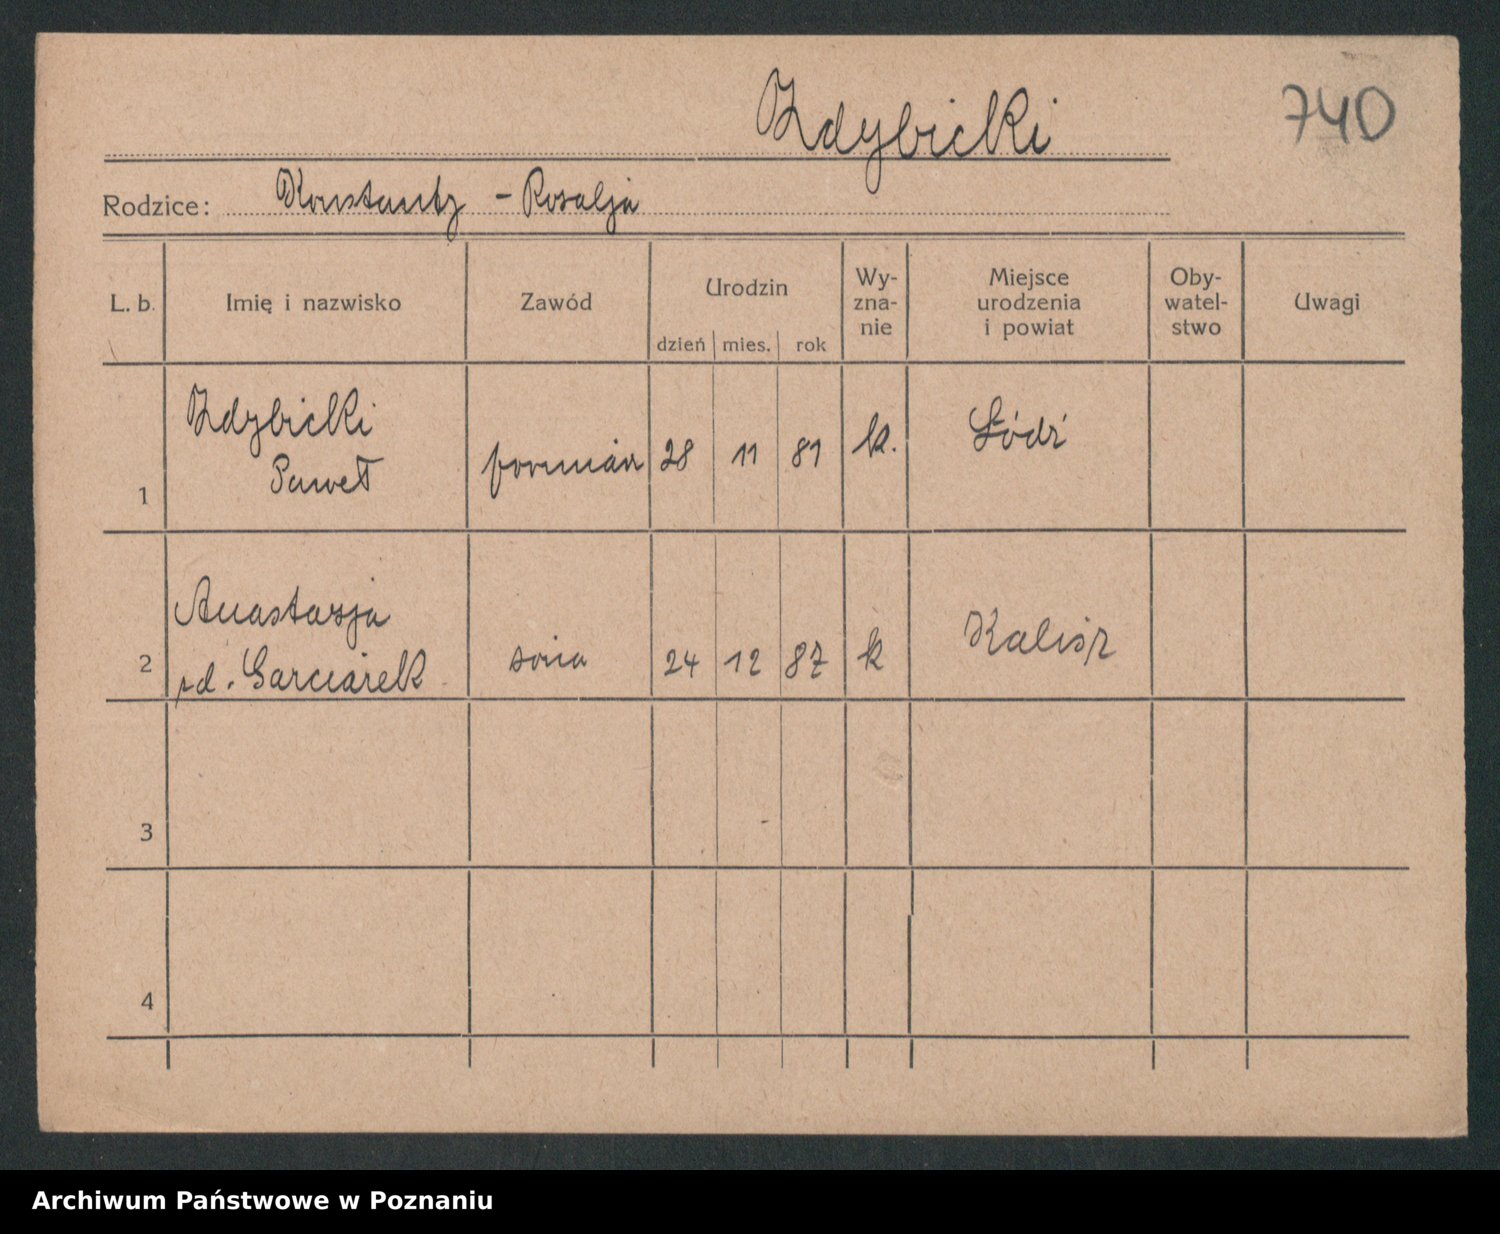 Zdybicki
740
Rodzice: Konstanty - Rozalja
L. b. Imię i nazwisko Zawód Urodzin dzień mies. rok Wy-zna-nie Miejsce urodzenia i powiat Oby-watel-stwo Uwagi
Zdybicki
1 Paweł formiarz 28 11 81 k. Łódź
Anastazja
2 zd. Garciarek żona 24 12 87 k Kalisz
3
4
Archiwum Państwowe w Poznaniu